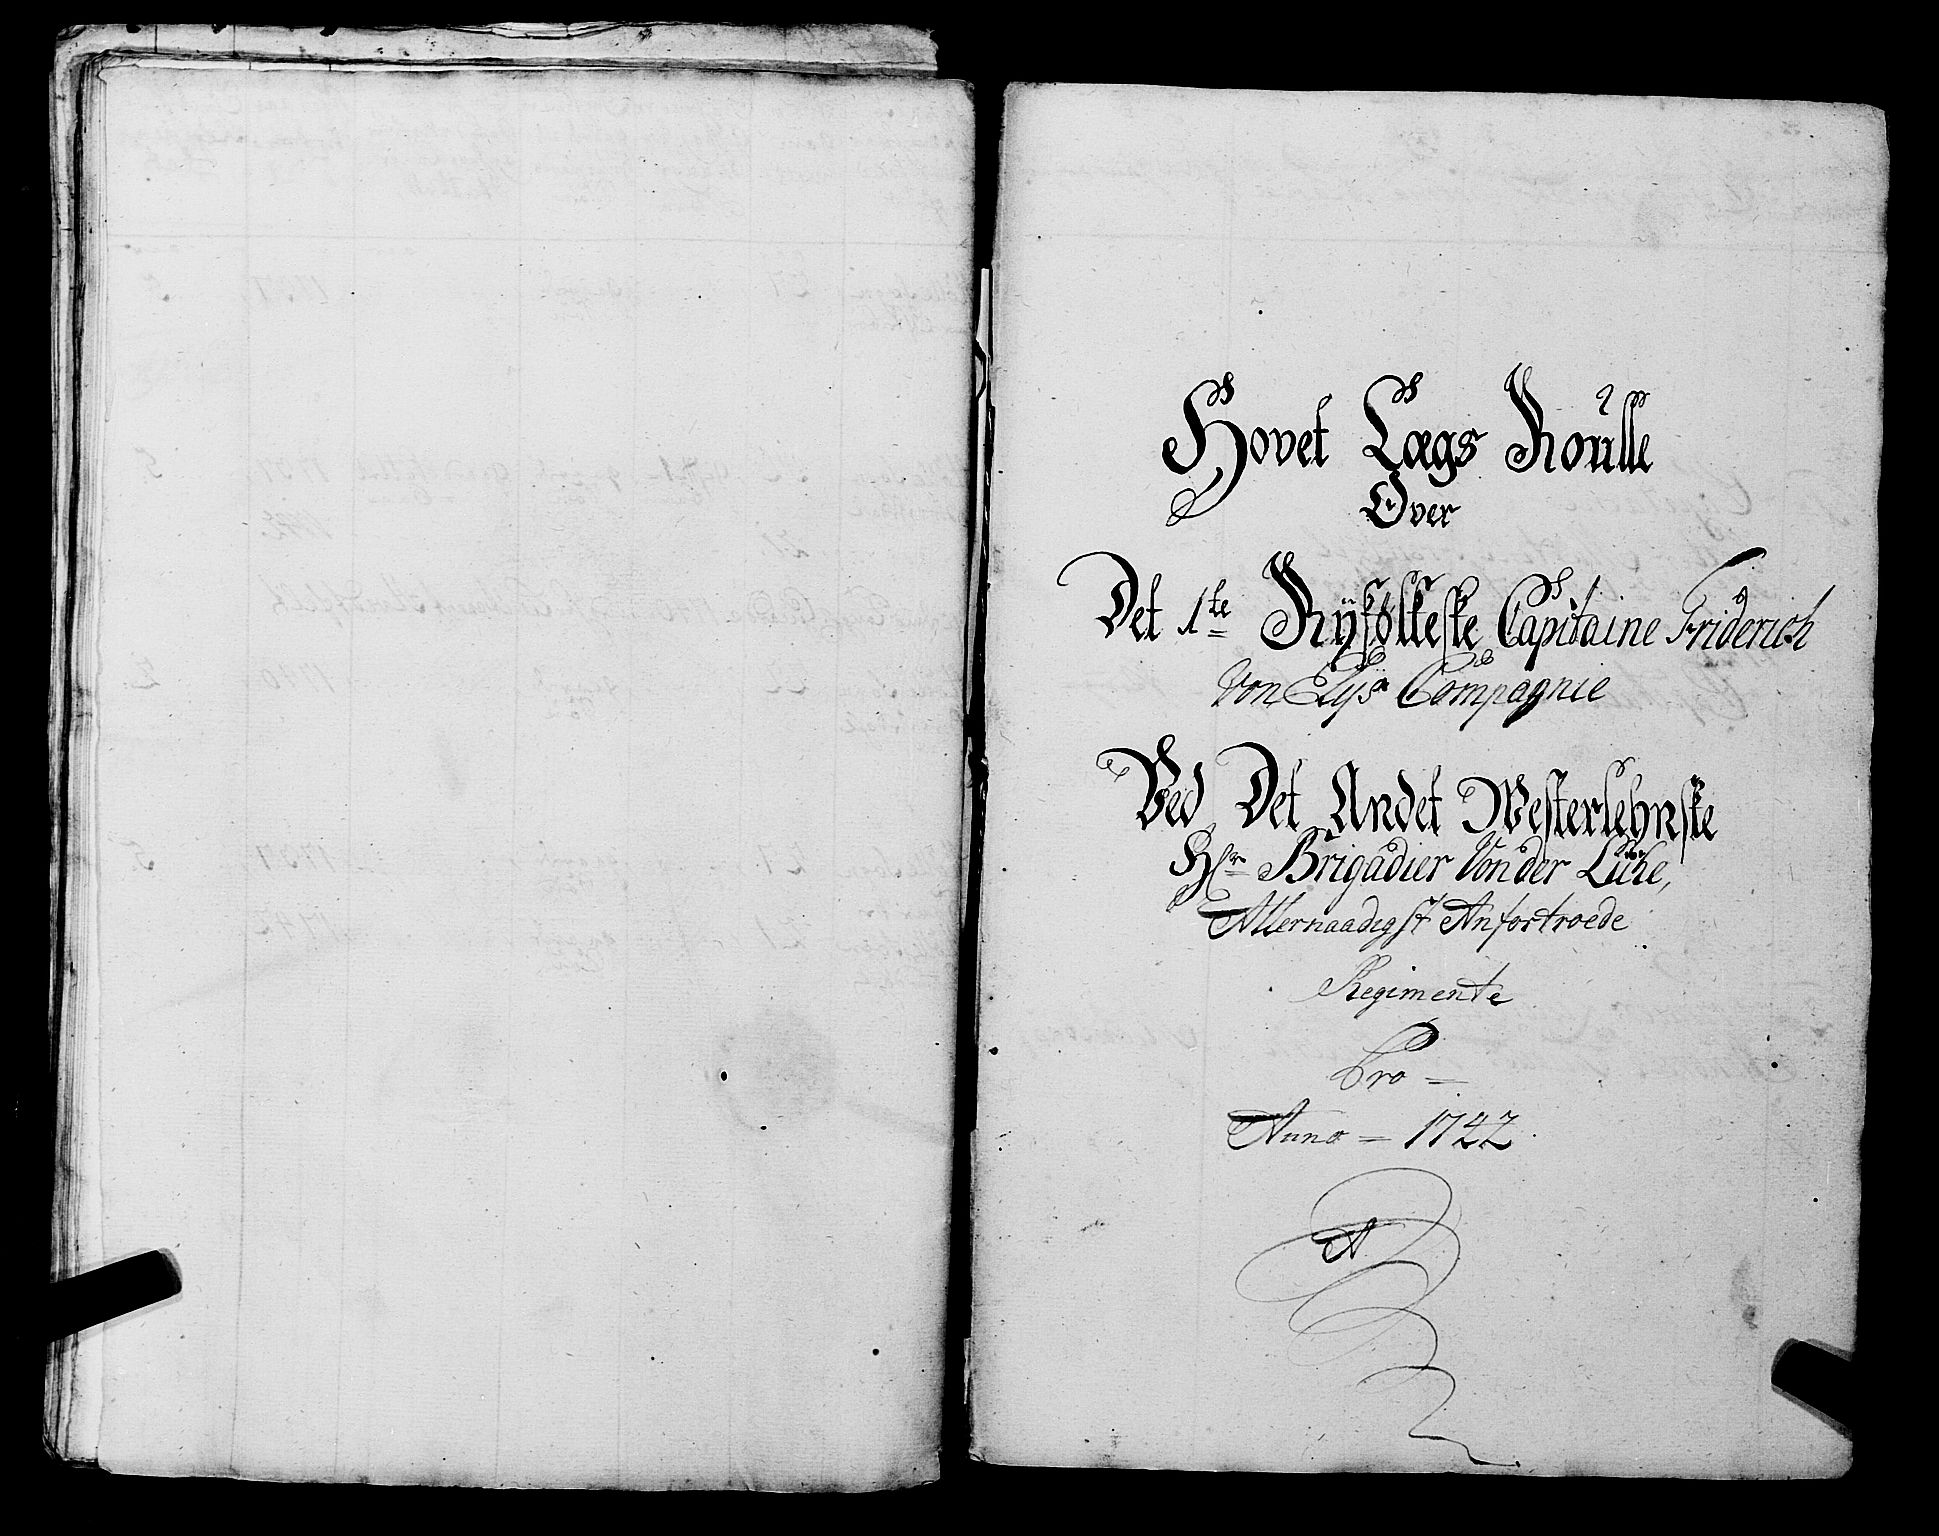 Hovet Lægs Roulle
Over
Det 1te Ryfølkeske Capitaine Friderich
Von Compagnie
Ved Det Andet Westerlehnske
Hr Brigadier Von der Lühe,
Allernaadigst Anfortroede
Regimente
Pro =
Anno = 1742